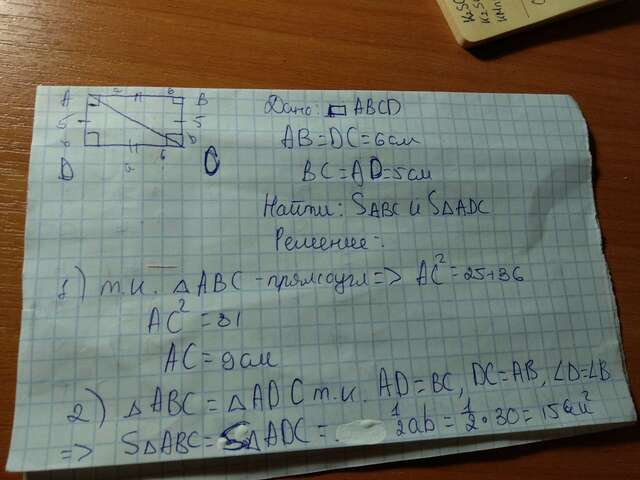 K₂SO
K₂S
KMn
A a b B
5 5
b b
D a 6 C
Дано: ▭ ABCD
AB=DC=6см
BC=AD=5см
Найти: SABC и S△ADC
Решение:
1) т.к. △ABC - прямоугл => AC²=25+36
AC²=81
AC=9см
2) △ABC=△ADC т.к. AD=BC, DC=AB, ∠D=∠B
=> S△ABC=S△ADC= ½ab=½·30=15см²